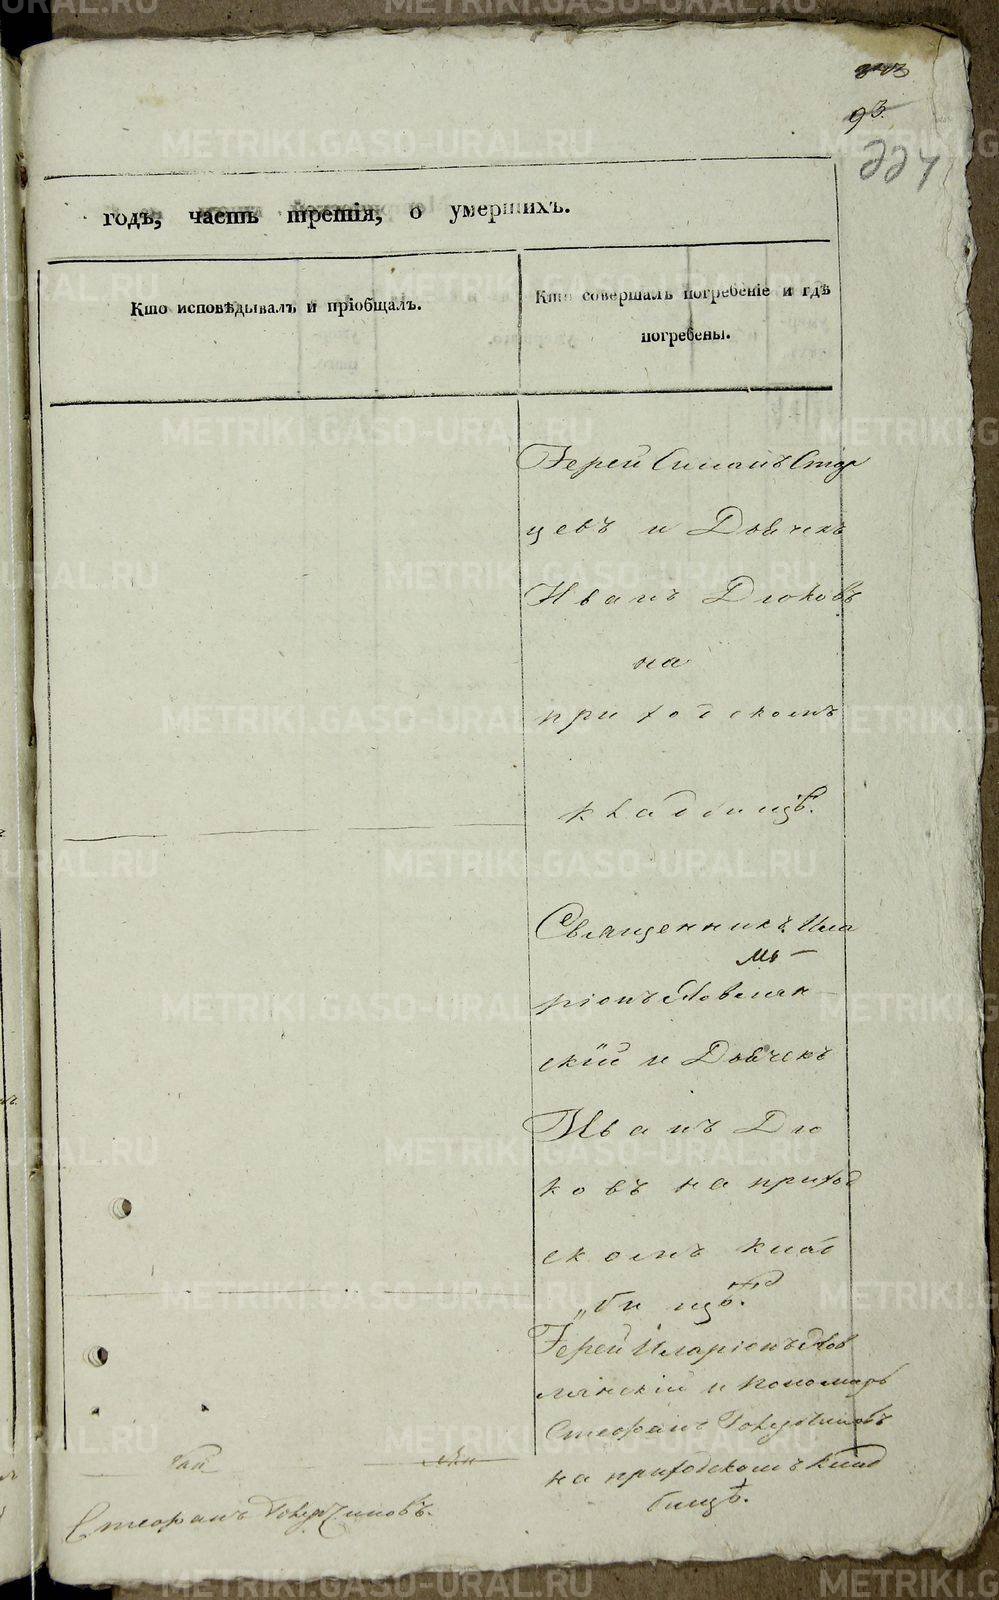 93.
224
годъ, часть третія, о умершихъ.
Кто исповѣдывалъ и пріобщалъ.
Кто совершалъ погребеніе и гдѣ
погребены.
Іерей Симеонъ Стар
цевъ и Дьячекъ
Иванъ Дюковъ
на
приходскомъ
кладбищѣ.
Священникъ Ила
ріонъ
скій и Дьячекъ
Иванъ Дю
ковъ на приход
скомъ клад
би щѣ.
Іерей Иларіонъ
и пономарь
Стефанъ
на приходскомъ клад
бищѣ.
Стефанъ
METRIKI.GASO-URAL.RU